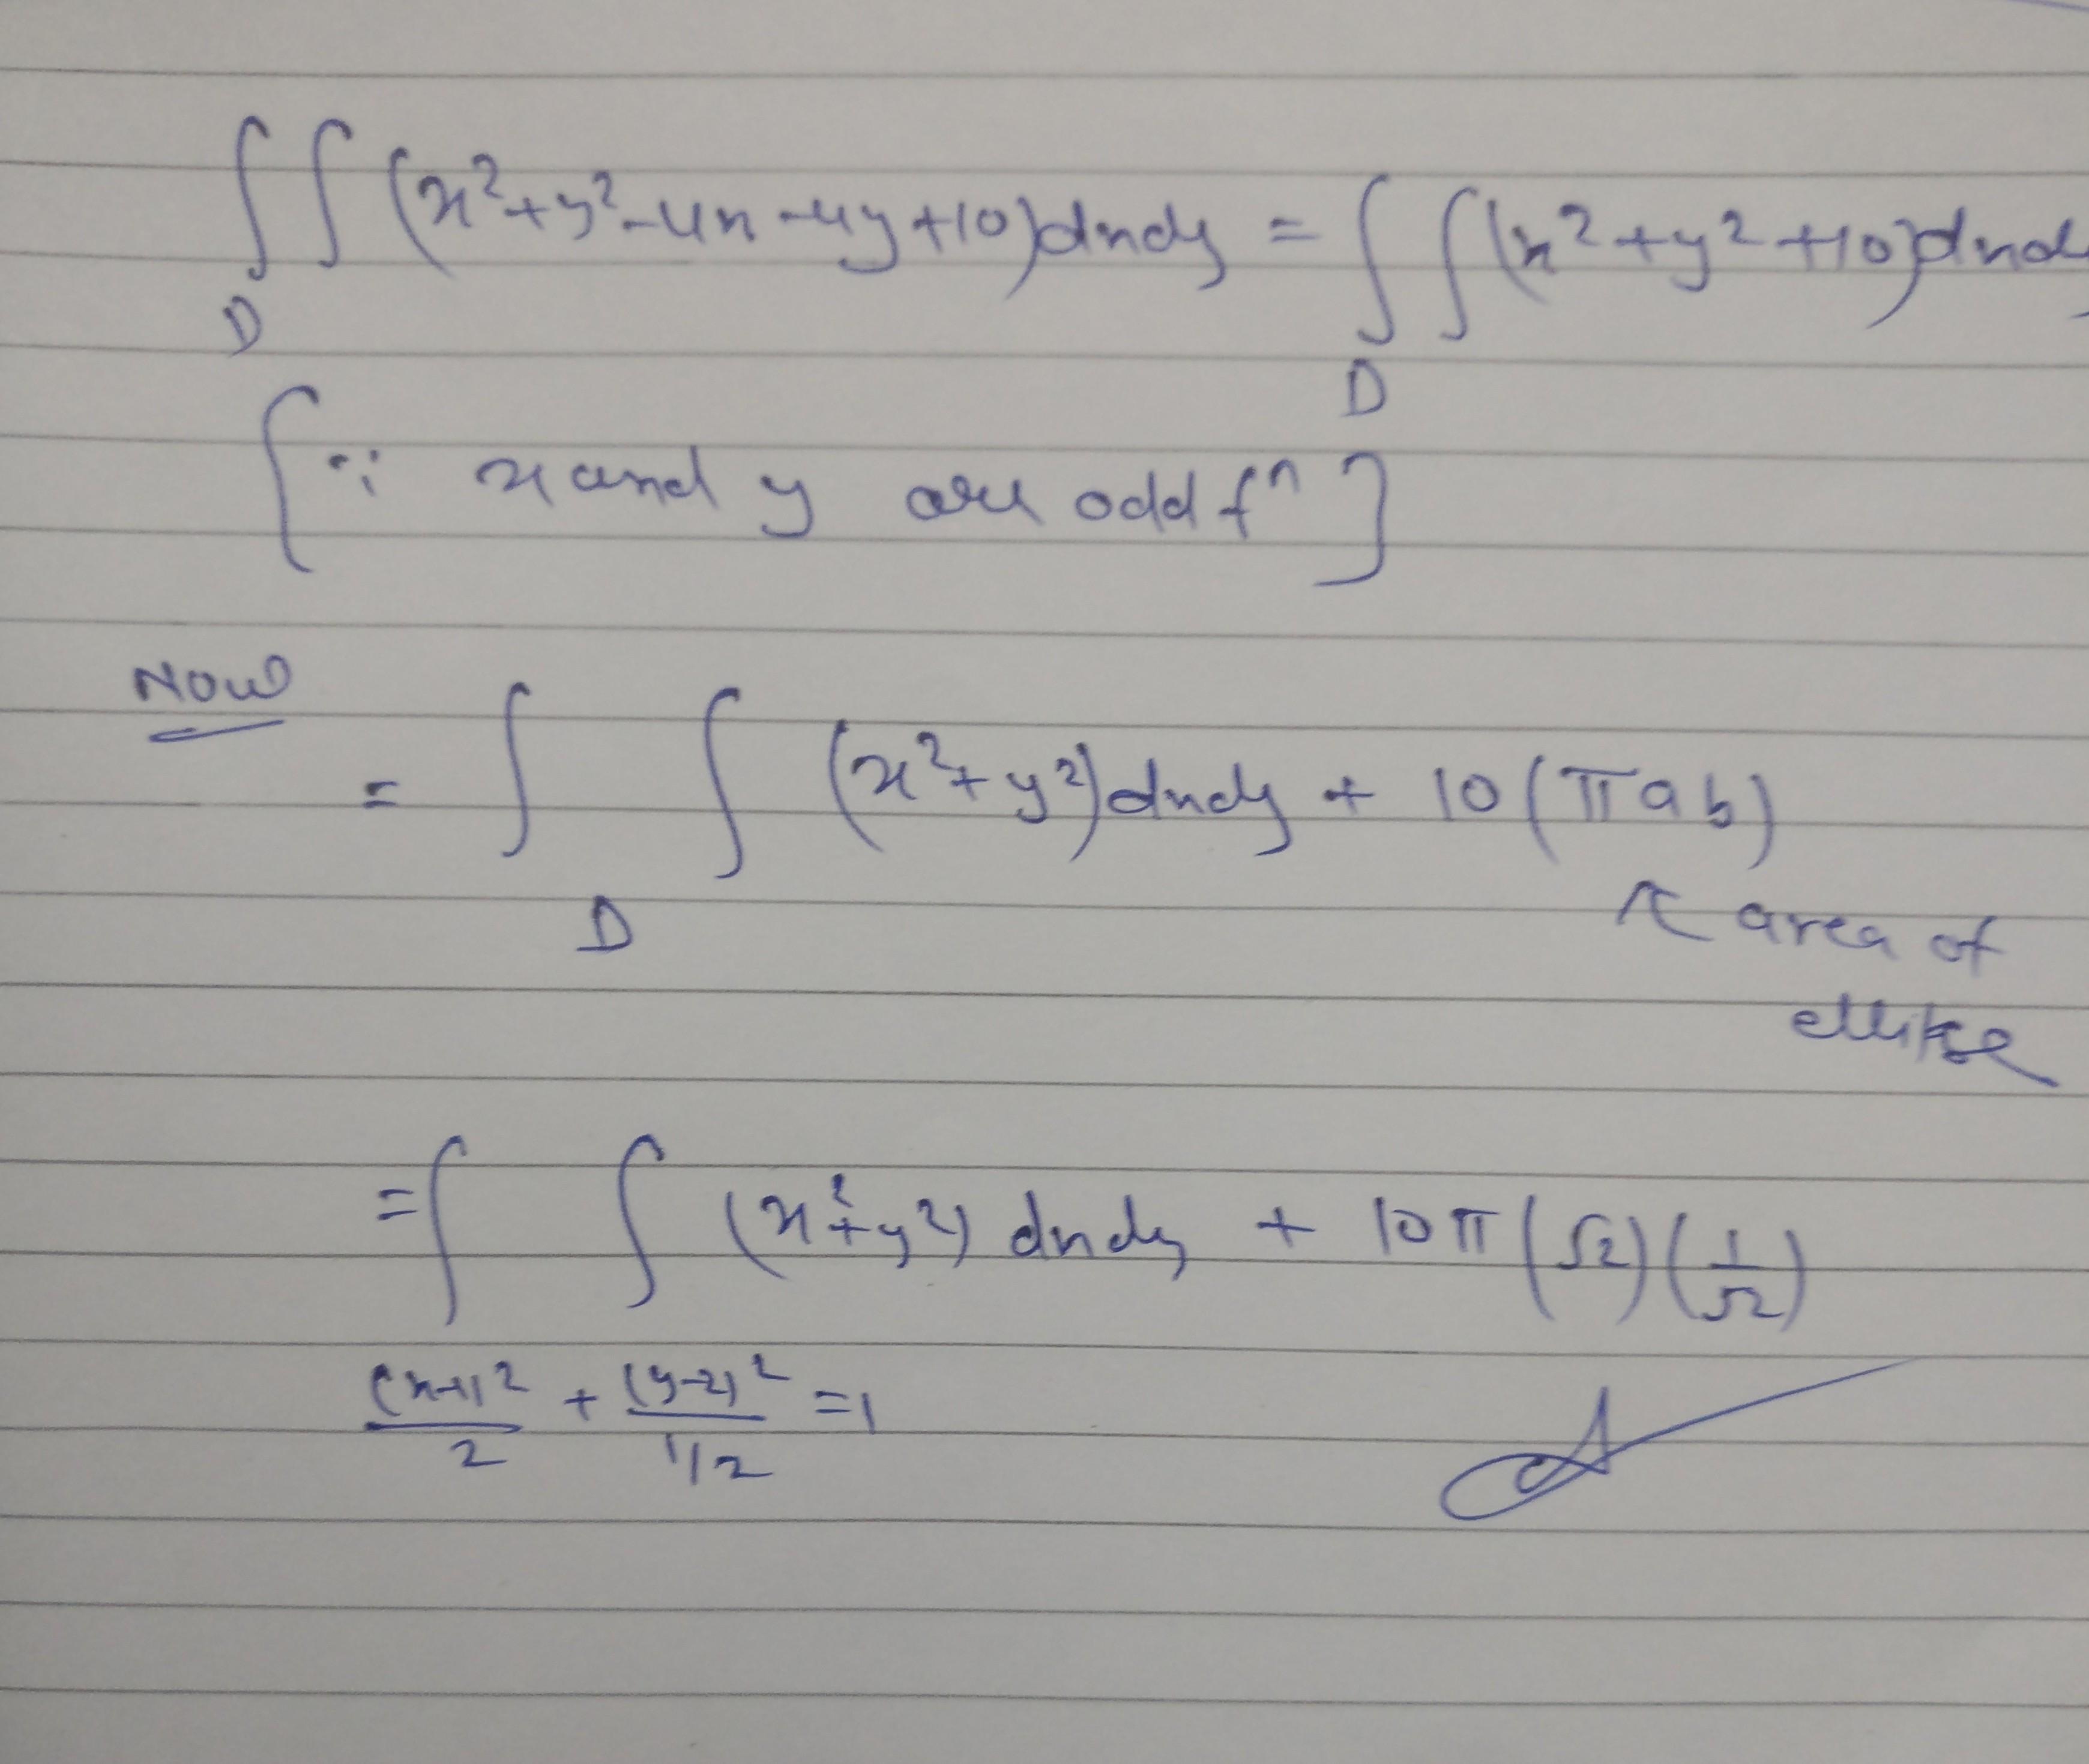 ∫∫ (x²+y²-4x-4y+10)dxdy = ∫∫(x²+y²+10)dxdy
D D
[∵ x and y are odd fⁿ]
Now
= ∫ ∫ (x²+y²)dxdy + 10(πab)
D ↖ area of
ellipse
= ∫ ∫ (x²+y²) dxdy + 10π(√2)(1/√2)
(x-1)²/2 + (y-2)²/1/2 = 1